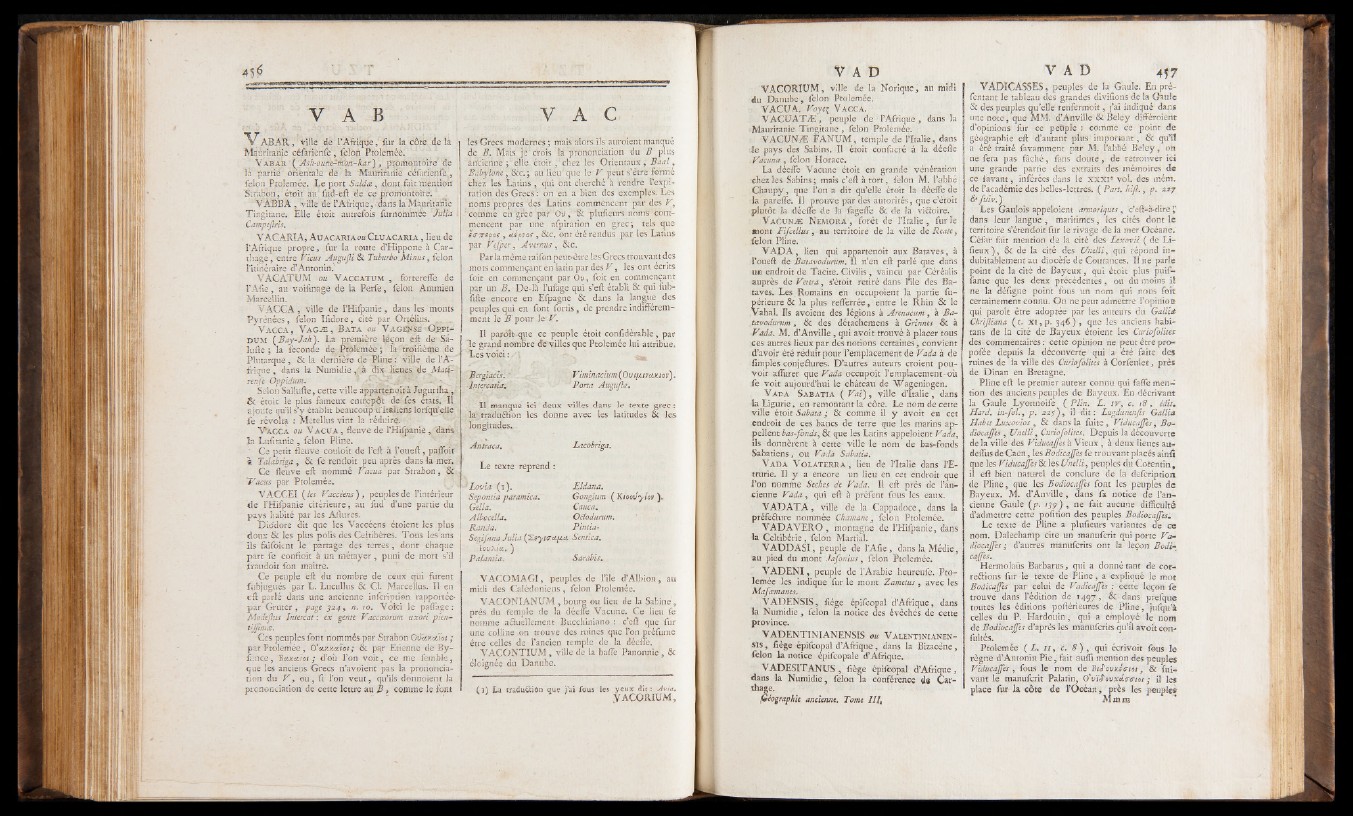 456
V A B
VABAR, ville de l'Afrique, sur la côte de la
Mauritanie césariense, selon Ptolemée.
VABAR (Ash-oune-mon-kar), promontoire de
la partie orientale de la Mauritanie césariense,
selon Ptolemée. Le port Saldæ, dont fait mention
Strabon, étoit au sud-est de ce promontoire.
VABBA, ville de l'Afrique, dans la Mauritanie
Tingitane. Elle étoit autrefois surnommée Julia
Campestris.
VACARIA, AUACARIA ou CLUACARIA, lieu de
l'Afrique propre, sur la route d'Hippone à Car-
thage, entre Vicus Augusti & Tuburbo Minus, selon
l'itinéraire d'Antonin.
VACATUM ou VACCATUM, forteresse de
l'Asie, au voisinage de la Perse, selon Ammien
Marcellin.
VACCA, ville de l'Hispanie, dans les monts
Pyrénées, selon Isidore, cité par Ortélius.
VACCA, VAGÆ, BATA ou VAGENSE OPPI-
DUM (Bay-Jah). La première leçon est de Sa-
luste; la seconde de Ptolemée; la troisième de
Plutarque, & la dernière de Pline: ville de l'A-
frique, dans la Numidie, à dix lieues de Matu-
rense Oppidum.
Selon Salluste, cette ville appartenoit à Jugurtha,
& étoit le plus fameux entrepôt de ses états. Il
ajoute qu'il s'y établit beaucoup d'Italiens lorsqu'elle
se révolta: Metellus vint la réduire.
VACCA ou VACUA, fleuve de l'Hispanie, dans
la Lusitanie, selon Pline.
Ce petit fleuve couloit de l'est à l'ouest, passoit
à Talabriga, & se rendoit peu après dans la mer.
Ce fleuve est nommé Vacua par Strabon, &
Vacus par Ptolemée.
VACCEI (les Vacciens), peuples de l'intérieur
de l'Hispanie citérieure, au sud d'une partie du
pays habité par les Astures.
Diodore dit que les Vaccéens étoient les plus
doux & les plus polis des Celtibères. Tous les ans
ils faisoient le partage des terres, dont chaque
part se confioit à un métayer, puni de mort s'il
fraudoit son maître.
Ce peuple est du nombre de ceux qui furent
subjugués par L. Lucullus & Cl. Marcellus. Il en
est parlé dans une ancienne inscription rapportée
par Gruter, page 324, n. 10. Voici le passage:
Modestus Intercat: ex gente Vaccæorum uxori pien-
tissimæ.
Ces peuples sont nommés par Strabon Οὐακκαῖοι;
par Ptolemée, Ο'υακκαῖοι; & par Etienne de By-
sance, Βακκαῖοι; d'où l'on voit, ce me semble,
que les anciens Grecs n'avoient pas la prononcia-
tion du V, ou, si l'on veut, qu'ils donnoient la
prononciation de cette lettre au B, comme le font
V A C
les Grecs modernes; mais alors ils auroient manqué
de B. Mais je crois la prononciation du B plus
ancienne; elle étoit, chez les Orientaux, Baal,
Babylone, &c.; au lieu que le V peut s'être formé
chez les Latins, qui ont cherché à rendre l'expi-
ration des Grecs: on en a bien des exemples. Les
noms propres des Latins commencent par des V,
comme en grec par Ου, & plusieurs noms com-
mencent par une aspiration en grec, tels que
ἑσπερος, &c. ont été rendus par les Latins
par Vesper, Avernus, &c.
Par la même raison peut-être les Grecs trouvant des
mots commençant en latin par des V, les ont écrits
soit en commençant par Ου, soit en commençant
par un B. De-là l'usage qui s'est établi & qui sub-
siste encore en Espagne & dans la langue des
peuples qui en sont sortis, de prendre indifférem-
ment le B pour le V.
Il paroît que ce peuple étoit considérable, par
le grand nombre de villes que Ptolemée lui attribue.
Les voici:
Bergiacis. Viminacium (Ουιμινακιον).
Intercatia. Porta Augusta.
Il manque ici deux villes dans le texte grec:
la traduction les donne avec les latitudes & les
longitudes.
Antraca. Lacobriga.
Le texte reprend:
Lovia (1). Eldana.
Sepontia paramica. Gongium ( ).
Gella. Cauca.
Albocella. Octodurum.
Rauda. Pintia.
Segisama Julia (Σεγισαμα Sentica.
ιουλια.)
Palantia. Sarabis.
VACOMAGI, peuples de l'île d'Albion, au
midi des Calédoniens, selon Ptolemée.
VACONIANUM, bourg ou lieu de la Sabine,
près du temple de la déesse Vacune. Ce lieu se
nomme actuellement Bacchiniano: c'est que sur
une colline on trouve des ruines que l'on présume
être celles de l'ancien temple de la déesse.
VACONTIUM, ville de la basse Pannonie, &
éloignée du Danube.
(1) La traduction que j'ai sous les yeux dit: Avia.
VACORIUM,
V A D
VACORIUM, ville de la Norique, au midi
du Danube, selon Ptolemée.
VACUA. Voyez VACCA.
VACUATÆ, peuple de l'Afrique, dans la
Mauritanie Tingitane, selon Ptolemée.
VACUNÆ FANUM, temple de l'Italie, dans
le pays des Sabins. Il étoit consacré à la déesse
Vacuna, selon Horace.
La déesse Vacune étoit en grande vénération
chez les Sabins; mais c'est à tort, selon M. l'abbé
Chaupy, que l'on a dit qu'elle étoit la déesse de
la paresse. Il prouve par des autorités, que c'étoit
plutôt la déesse de la sagesse & de la victoire.
VACUNÆ NEMORA, forêt de l'Italie, sur le
mont Fiscellus, au territoire de la ville de Reate,
selon Pline.
VADA, lieu qui appartenoit aux Bataves, à
l'ouest de Batavodurum. Il n'en est parlé que dans
un endroit de Tacite. Civilis, vaincu par Céréalis
auprès de Vetera, s'étoit retiré dans l'île des Ba-
taves. Les Romains en occupoient la partie su-
périeure & la plus resserrée, entre le Rhin & le
Vahal. Ils avoient des légions à Arenacum, à Ba-
tavodurum, & des détachemens à Grinnes & à
Vada. M. d'Anville, qui avoit trouvé à placer tous
ces autres lieux par des notions certaines, convient
d'avoir été réduit pour l'emplacement de Vada à de
simples conjectures. D'autres auteurs croient pou-
voir assurer que Vada occupoit l'emplacement où
se voit aujourd'hui le château de Wageningen.
VADA SABATIA (Vai), ville d'Italie, dans
la Ligurie, en remontant la côte. Le nom de cette
ville étoit Sabata; & comme il y avoit en cet
endroit de ces bancs de terre que les marins ap-
pellent bas-fonds, & que les Latins appeloient Vada,
ils donnèrent à cette ville le nom de bas-fonds
Sabatiens, ou Vada Sabatia.
VADA VOLATERRA, lieu de l'Italie dans l'E-
trurie. Il y a encore un lieu en cet endroit que
l'on nomme Seches de Vada. Il est près de l'an-
cienne Vada, qui est à présent sous les eaux.
VADATA, ville de la Cappadoce, dans la
préfecture nommée Chamane, selon Ptolemée.
VADAVERO, montagne de l'Hispanie, dans
la Celtibérie, selon Martial.
VADDASI, peuple de l'Asie, dans la Médie,
au pied du mont Jasonius, selon Ptolemée.
VADENI, peuple de l'Arabie heureuse. Pto-
lemée les indique sur le mont Zametus, avec les
Masæmanes.
VADENSIS, siège épiscopal d'Afrique, dans
la Numidie, selon la notice des évêchés de cette
province.
VADENTINIANENSIS ou VALENTINIANEN-
SIS, siège épiscopal d'Afrique, dans la Bizacène,
selon la notice épiscopale d'Afrique.
VADESITANUS, siège épiscopal d'Afrique,
dans la Numidie, selon la conférence de Car-
thage.
Géographie ancienne. Tome III.
V A D 457
VADICASSES, peuples de la Gaule. En pré-
sentant le tableau des grandes divisions de la Gaule
& des peuples qu'elle renfermoit, j'ai indiqué dans
une note, que MM. d'Anville & Beley différoient
d'opinions sur ce peuple: comme ce point de
géographie est d'autant plus important, & qu'il
a été traité savamment par M. l'abbé Beley, on
ne sera pas fâché, sans doute, de retrouver ici
une grande partie des extraits des mémoires de
ce savant, insérées dans le XXXIe vol. des mém.
de l'académie des belles-lettres. (Part. hist., p. 227
& suiv.)
Les Gaulois appeloient armoriques, c'est-à-dire,
dans leur langue, maritimes, les cités dont le
territoire s'étendoit sur le rivage de la mer Océane.
César fait mention de la cité des Lexovii (de Li-
sieux), & de la cité des Unelli, qui répond in-
dubitablement au diocèse de Coutances. Il ne parle
point de la cité de Bayeux, qui étoit plus puis-
sante que les deux précédentes, ou du moins il
ne la désigne point sous un nom qui nous soit
certainement connu. On ne peut admettre l'opinion
qui paroît être adoptée par les auteurs du Gallia
Christiana (t. XI, p. 346), que les anciens habi-
tans de la cité de Bayeux étoient les Curiosolites
des commentaires: cette opinion ne peut être pro-
posée depuis la découverte qui a été faite des
ruines de la ville des Curiosolites à Corseuler, près
de Dinan en Bretagne.
Pline est le premier auteur connu qui fasse men-
tion des anciens peuples de Bayeux. En décrivant
la Gaule Lyonnoise (Plin. L. IV, c. 18, édit.
Hard. in-fol., p. 225), il dit: Lugdunensis Gallia
Habet Lexovios, & dans la suite, Viducasses, Bo-
diocasses, Unelli, Curiosolites. Depuis la découverte
de la ville des Viducasses à Vieux, à deux lieues au-
dessus de Caen, les Bodicasses se trouvant placés ainsi
que les Viducasses & les Unelli, peuples du Cotentin,
il est bien naturel de conclure de la description
de Pline, que les Bodiocasses sont les peuples de
Bayeux. M. d'Anville, dans sa notice de l'an-
cienne Gaule (p. 159), ne fait aucune difficulté
d'admettre cette position des peuples Bodiocasses.
Le texte de Pline a plusieurs variantes de ce
nom. Dalechamp cite un manuscrit qui porte Va-
diocasses; d'autres manuscrits ont la leçon Bodi-
casses.
Hermolaüs Barbarus, qui a donné tant de cor-
rections sur le texte de Pline, a expliqué le mot
Bodicasses par celui de Vadicasses: cette leçon se
trouve dans l'édition de 1497, & dans presque
toutes les éditions postérieures de Pline, jusqu'à
celles du P. Hardouin, qui a employé le nom
de Bodiocasses d'après les manuscrits qu'il avoit con-
sultés.
Ptolemée (L. II, c. 8), qui écrivoit sous le
règne d'Antonin Pie, fait aussi mention des peuples
Viducasses, sous le nom de & sui-
vant le manuscrit Palatin, il les
place sur la côte de l'Océan, près les peuples
M m m